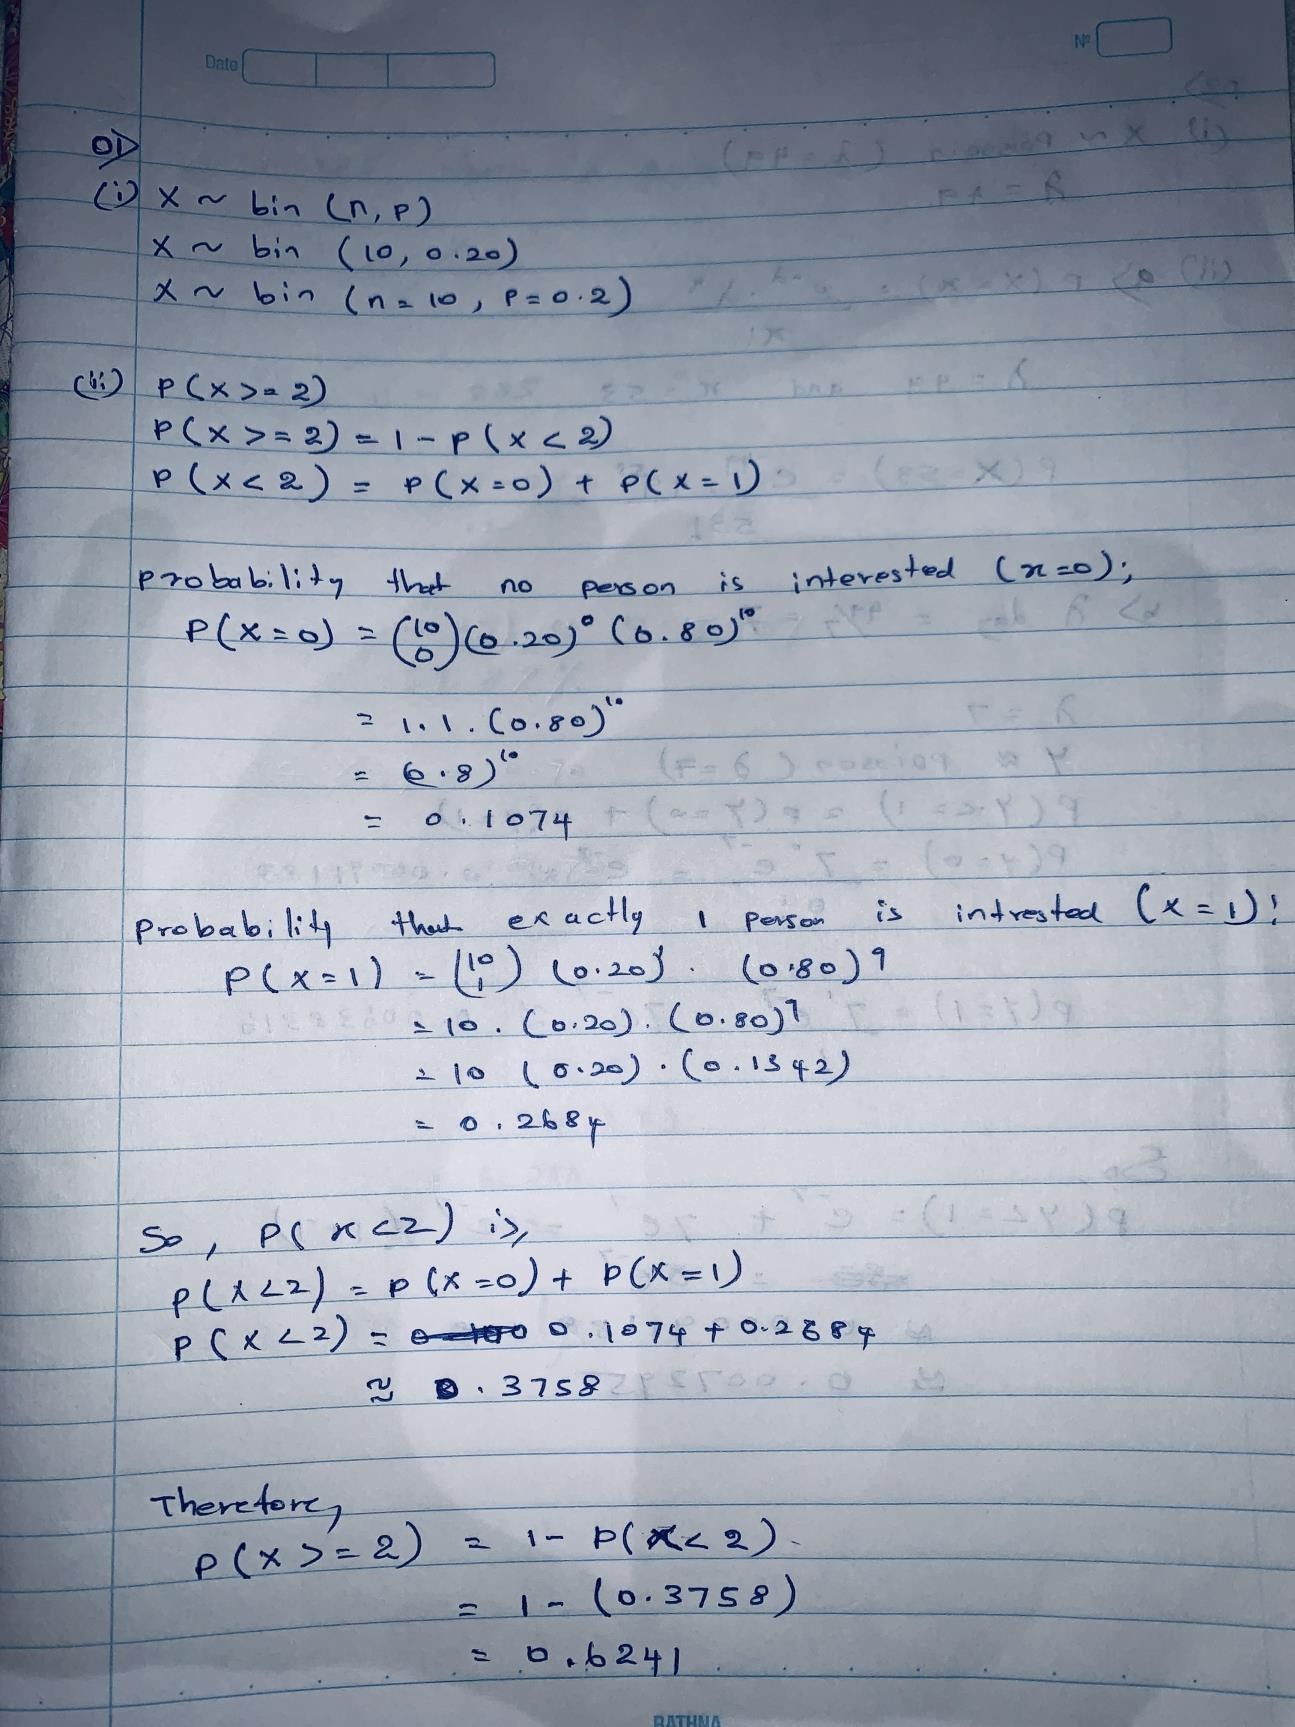 Date
Nº
01>
(i) X ~ bin (n, p)
X ~ bin (10, 0.20)
X ~ bin (n = 10, P = 0.2)
(ii) P(X >= 2)
P(X >= 2) = 1 - P(X < 2)
P(X < 2) = P(X = 0) + P(X = 1)
probability that no person is interested (x = 0);
P(X = 0) = (10 0) (0.20)⁰ (0.80)¹⁰
= 1 . 1 . (0.80)¹⁰
= (0.8)¹⁰
= 0.1074
Probability that exactly 1 person is intrested (x = 1);
P(X = 1) = (10 1) (0.20)¹ . (0.80)⁹
= 10 . (0.20) . (0.80)⁹
= 10 (0.20) . (0.1342)
= 0.2684
So, P(X < 2) is,
P(X < 2) = P(X = 0) + P(X = 1)
P(X < 2) = 0.1074 + 0.2684
≈ 0.3758
Therefore,
P(X >= 2) = 1 - P(X < 2).
= 1 - (0.3758)
= 0.6241
RATHNA